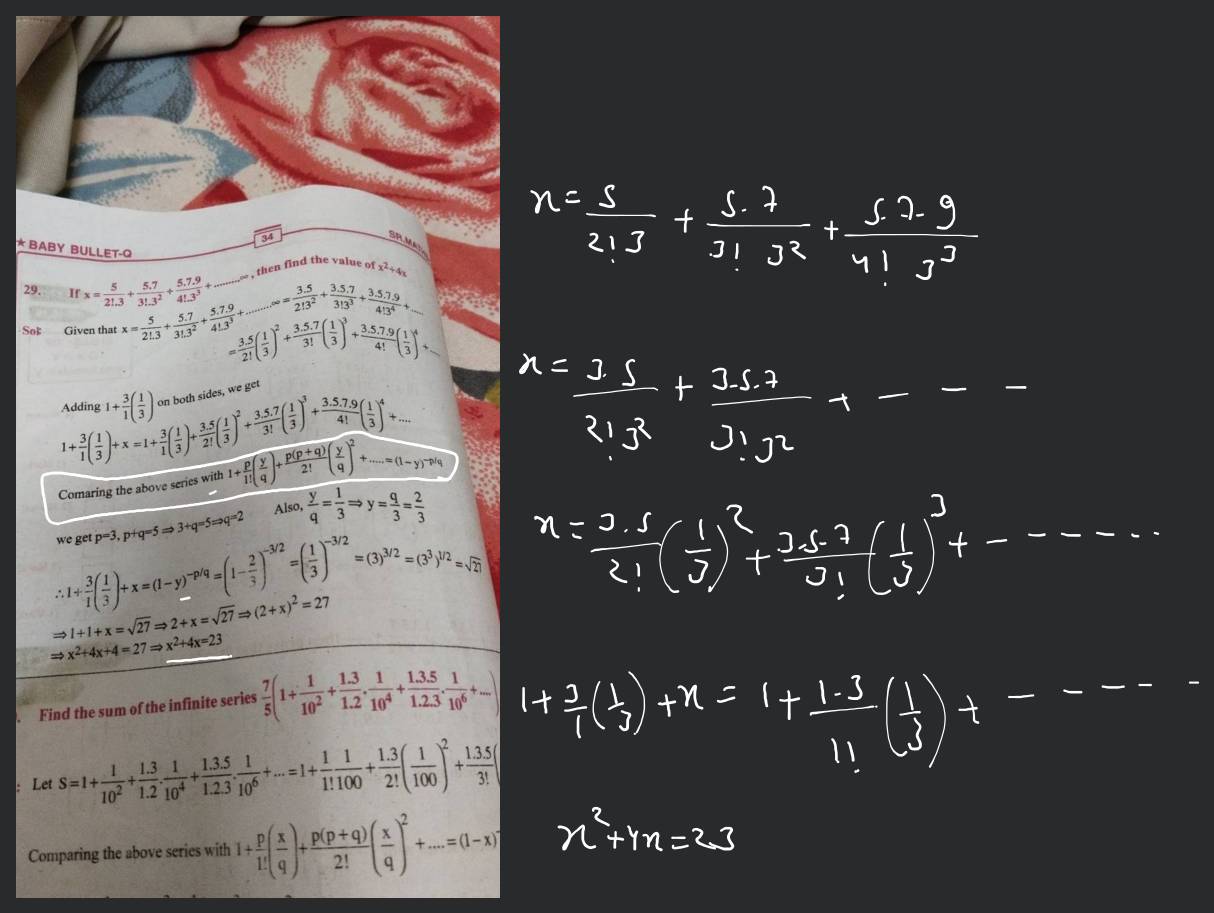 ★ BABY BULLET-Q
34
SR.MA
29. If x = 5/2!.3 + 5.7/3!.3² + 5.7.9/4!.3³ + .........∞, then find the value of x²+4x
Sol: Given that x = 5/2!.3 + 5.7/3!.3² + 5.7.9/4!.3³ + .........∞ = 3.5/2!3² + 3.5.7/3!3³ + 3.5.7.9/4!3⁴ + ....
= 3.5/2! (1/3)² + 3.5.7/3! (1/3)³ + 3.5.7.9/4! (1/3)⁴ + ....
Adding 1+3/1(1/3) on both sides, we get
1+3/1(1/3)+x = 1+3/1(1/3)+3.5/2!(1/3)²+3.5.7/3!(1/3)³+3.5.7.9/4!(1/3)⁴+....
Comaring the above series with 1+p/1!(y/q)+p(p+q)/2!(y/q)²+.....=(1−y)^−p/q
we get p=3, p+q=5⇒3+q=5⇒q=2 Also, y/q=1/3⇒y=q/3=2/3
∴1+3/1(1/3)+x=(1−y)^−p/q=(1−2/3)^−3/2=(1/3)^−3/2=(3)^3/2=(3³)^1/2=√27
⇒1+1+x=√27⇒2+x=√27⇒(2+x)²=27
⇒x²+4x+4=27⇒x²+4x=23
. Find the sum of the infinite series 7/5(1+1/10²+1.3/1.2.1/10⁴+1.3.5/1.2.3.1/10⁶+....)
: Let S=1+1/10²+1.3/1.2.1/10⁴+1.3.5/1.2.3.1/10⁶+...=1+1/1! 1/100+1.3/2!(1/100)²+1.3.5/3!(
Comparing the above series with 1+p/1!(x/q)+p(p+q)/2!(x/q)²+....=(1−x)
x = 5/2!3 + 5.7/3! 3² + 5.7.9/4! 3³
x = 3.5/2!3² + 3.5.7/3!3² + – – –
x = 3.5/2!(1/3)² + 3.5.7/3!(1/3)³ + – – – – – . .
1+3/1(1/3)+x = 1+1.3/1!(1/3)+ – – – – – -
x²+4x=23